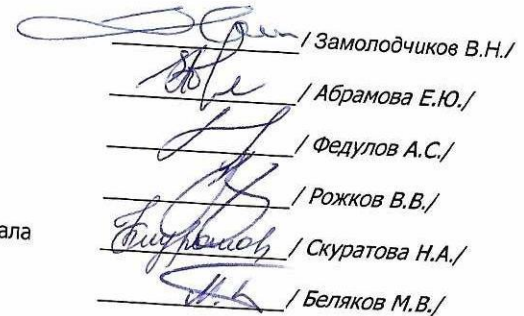 / Замолодчиков В.Н./
/ Абрамова Е.Ю./
/ Федулов А.С./
/ Рожков В.В./
ала / Скуратова Н.А./
/ Беляков М.В./